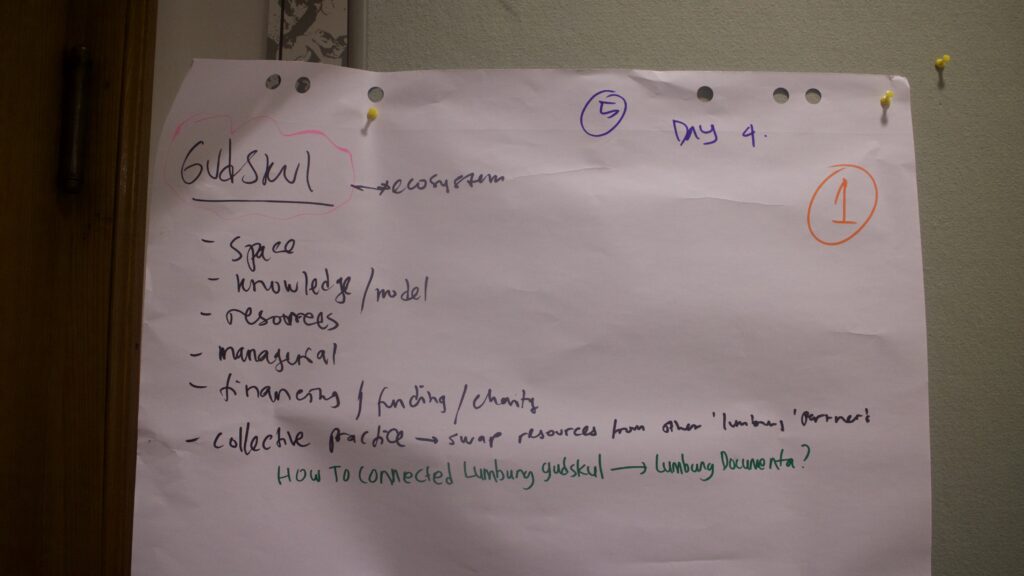 5
Day 4.
Gudskul ↔ ecosystem
1
- space
- knowledge / model
- resources
- managerial
- financing / funding / charity
- collective practice → swap resources from other 'lumbung' partners
How To Connected Lumbung gudskul → Lumbung Documenta?